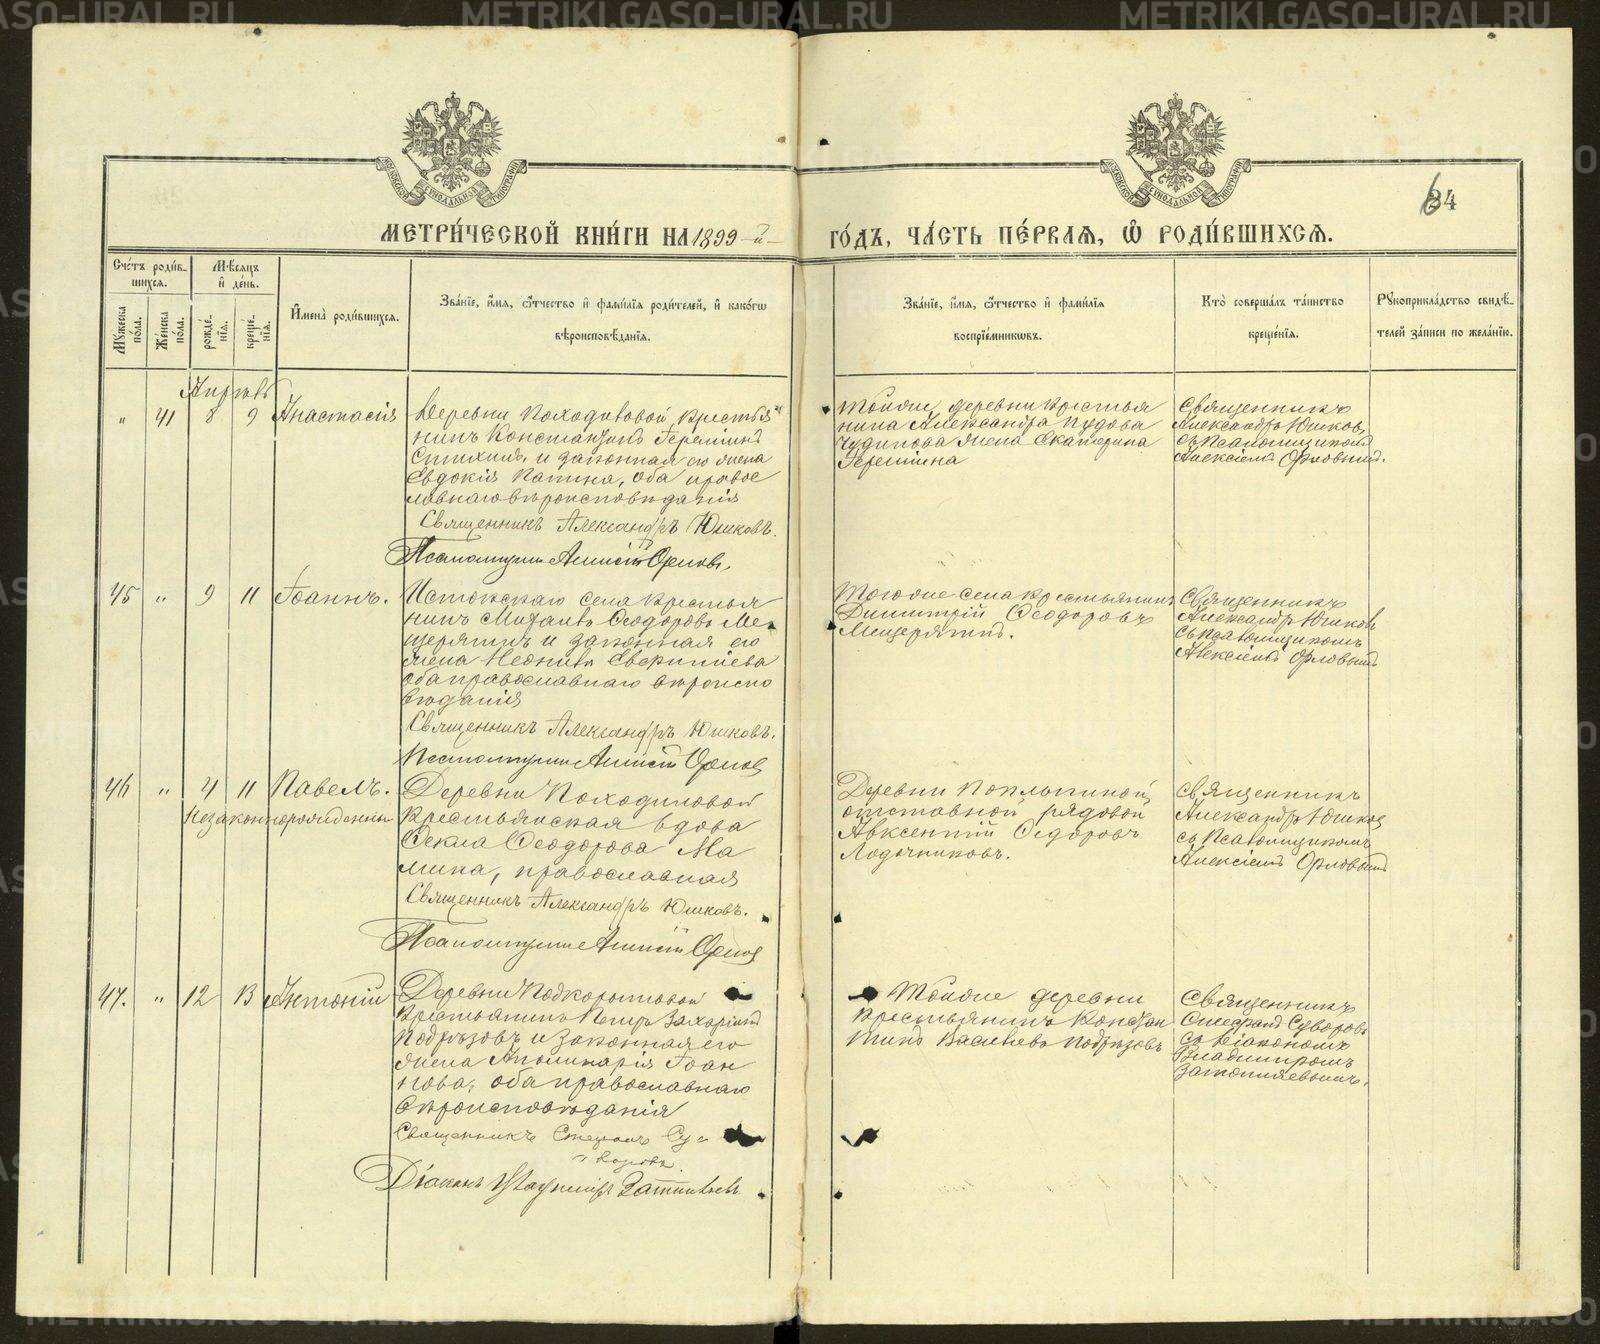 METRIKI.GASO-URAL.RU
64
МЕТРИ́ЧЕСКОЙ КНИ́ГИ НА 1899-й
ГО́ДЪ, ЧА́СТЬ ПЕ́РВАЯ, Ѡ РОДИ́ВШИХСЯ.
Сче́тъ роди́в-
шихся.
Мѣсяцъ
и҆ де́нь.
Му́жеска по́ла.
Же́нска по́ла.
рожде́-
нїя.
креще́-
нїя.
И҆мена̀ роди́вшихся.
Зва́нїе, и҆́мя, ѻ҆́тчество и҆ фамѝлїя роди́телей, и҆ како́гѡ
вѣроисповѣ́данїя.
Зва́нїе, и҆́мя, ѻ҆́тчество и҆ фамѝлїя
воспрїе́мникѡвъ.
Кто̀ соверша́лъ та́инство
креще́нїя.
Рꙋкоприкла́дство свидѣ́-
телей за́писи по жела́нїю.
Апрѣль
" 41 8 9 Анастасія
Деревни Походиловой, крестья
нинъ Константинъ
и законная его жена
Евдокія, оба правос
лавнаго вѣроисповѣданія
Священникъ Александръ Юшковъ.
Псаломщикъ Алексій Орловъ.
Тойже деревни крестья
нина Александра
жена Екатерина
Священникъ
Александръ Юшковъ,
съ псаломщикомъ
Алексіемъ Орловымъ.
45 " 9 11 Іоаннъ.
Истокскаго села крестья
нинъ Михаилъ Ѳеодоровъ Ме-
щерягинъ и законная его
жена Неонила
оба православнаго вѣроиспо
вѣданія
Священникъ Александръ Юшковъ.
Псаломщикъ Алексій Орловъ
Тогоже села крестьянинъ
Димитрій Ѳеодоровъ
Мещерягинъ.
Священникъ
Александръ Юшковъ
съ псаломщикомъ
Алексіемъ Орловымъ
46 " 4 11 Павелъ.
Незаконнорожденный
Деревни Походиловой
крестьянская вдова
Ѳекла Ѳеодорова Ма
мина, православная
Священникъ Александръ Юшковъ.
Псаломщикъ Алексій Орловъ
Деревни
отставной рядовой
Авксентій Ѳедоровъ
Лодочниковъ.
Священникъ
Александръ Юшковъ
съ псаломщикомъ
Алексіемъ Орловымъ
47. " 12 13 Антоній
Деревни Подкорытовой
крестьянинъ Петръ Захаріинъ
Подрѣзовъ и законная его
жена Аполинарія Іоан
нова, оба православнаго
вѣроисповѣданія
Священникъ Стефанъ Су-
воровъ
Діаконъ Владиміръ
Тойже деревни
крестьянинъ Констан
тинъ Васильевъ Подрѣзовъ
Священникъ
Стефанъ Суворовъ
съ діакономъ
Владиміромъ